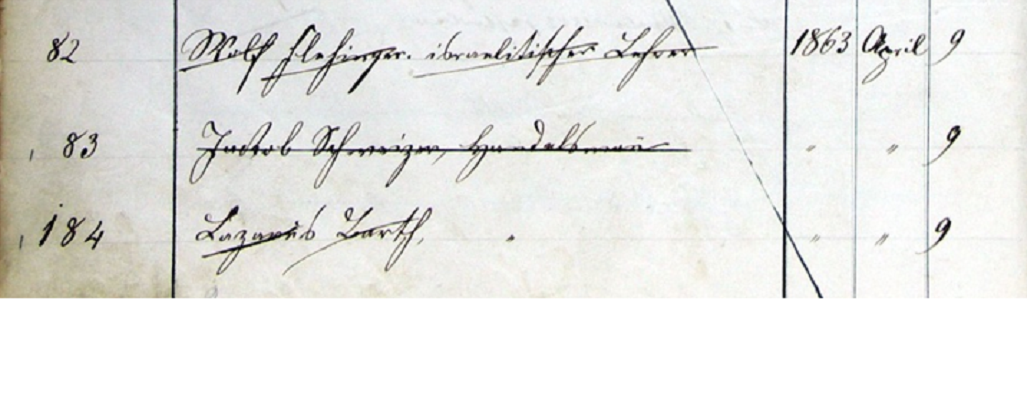 82 Wolf Flehinger. israelitischer Lehrer 1863 April 9
83 Jackob Schweizer, Handelsman̄ " " 9
184 Lazarus Barth, " " " 9